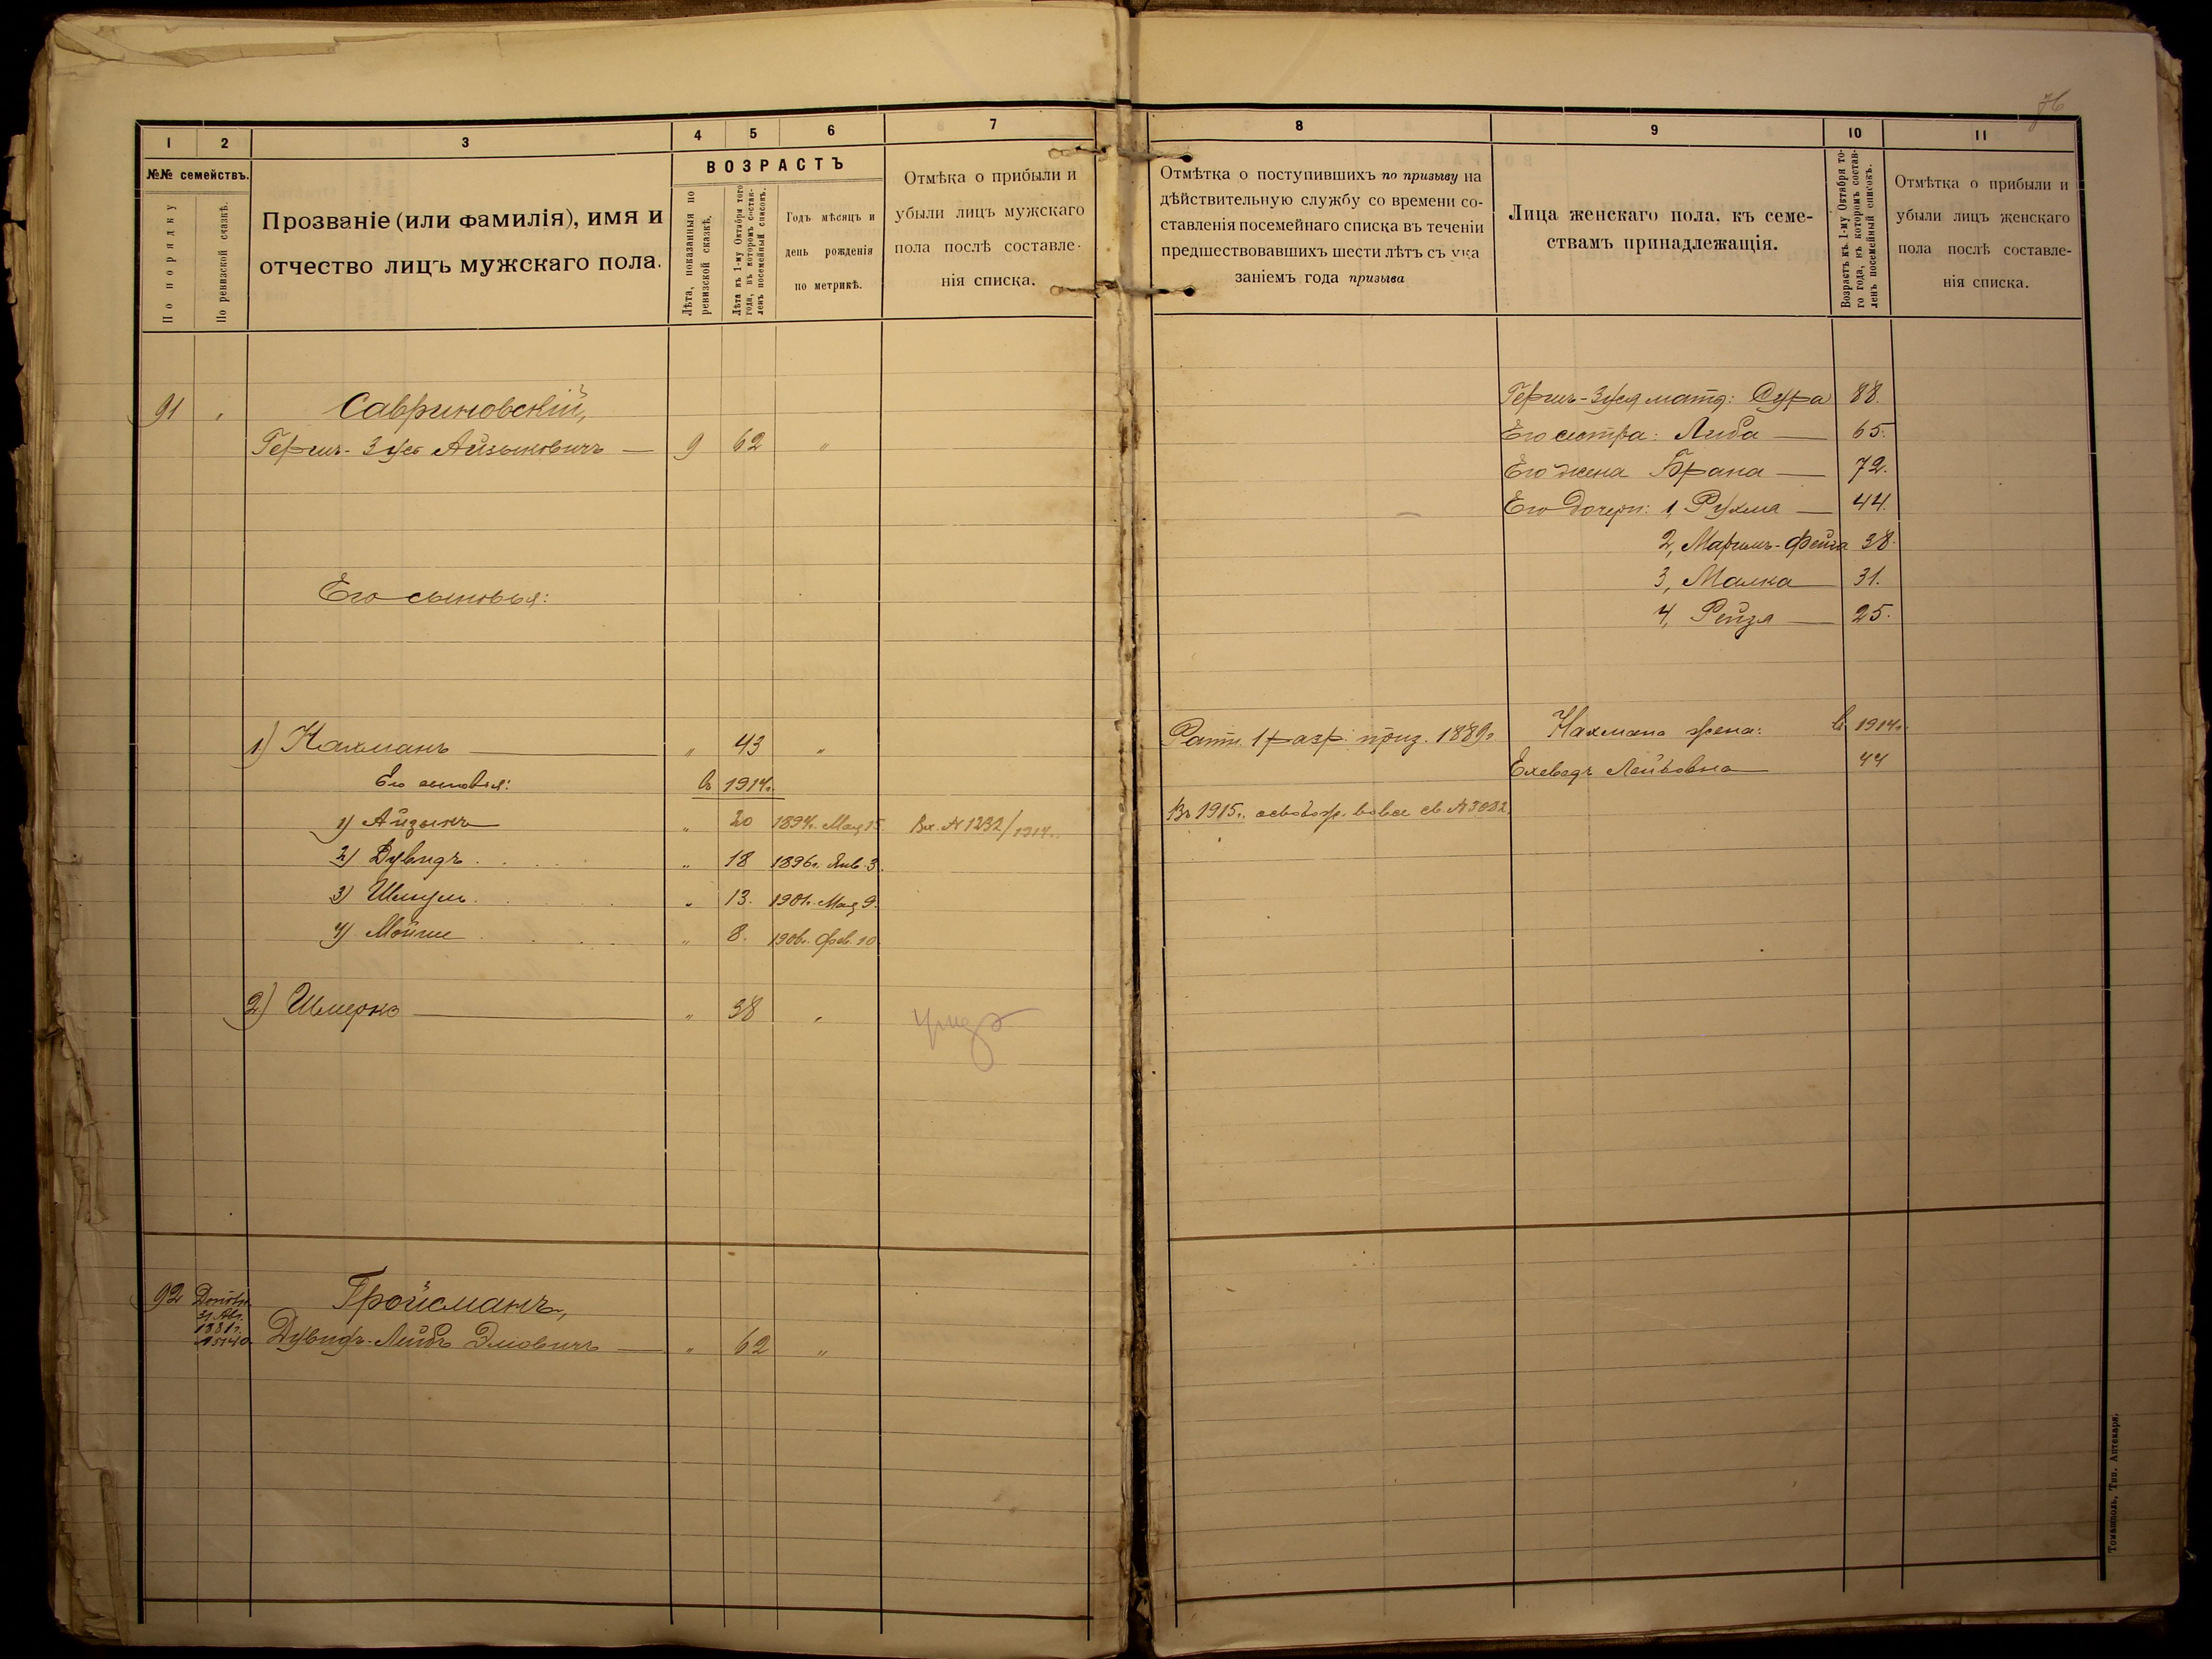 76
1 2 3 4 5 6 7
№№ семействъ.
По порядку
По ревизской сказкѣ.
Прозваніе (или фамилія), имя и
отчество лицъ мужскаго пола.
ВОЗРАСТЪ
Лѣта, показанныя по
ревизской сказкѣ.
Лѣта къ 1-му Октября того
года, въ которомъ состав-
ленъ посемейный списокъ.
Годъ мѣсяцъ и
день рожденія
по метрикѣ.
Отмѣка о прибыли и
убыли лицъ мужскаго
пола послѣ составле-
нія списка.
91 Савриновскій,
Гершъ-Зуся Айзыковичъ — 9 62 "
Его сыновья:
1) Нахманъ — " 43 "
Его сыновья: въ 1914г.
1) Айзыкъ " 20 1894г. Мая 15. Вх. № 1232/1914г.
2) Дувидъ . . . " 18 1896г. Янв. 3.
3) Шмуль . . . " 13. 1901г. Мая 9.
4) Мойше . . . " 8. 1906г. Фев. 10.
2) Шмерко — " 38 "
92 31 Авг.
1881г.
№5140.
Гройсманъ,
Дувидъ-Лейбъ Эліовичъ — " 62 "
8 9 10 11
Отмѣтка о поступившихъ по призыву на
дѣйствительную службу со времени со-
ставленія посемейнаго списка въ теченіи
предшествовавшихъ шести лѣтъ съ ука
заніемъ года призыва
Лица женскаго пола, къ семе-
ствамъ принадлежащія.
Возрастъ къ 1-му Октября то-
го года, въ которомъ состав-
ленъ посемейный списокъ.
Отмѣтка о прибыли и
убыли лицъ женскаго
пола послѣ составле-
нія списка.
Гершъ-Зуся мать: Сура 88.
Его сестра: Либа — 65.
Его жена Брана — 72.
Его дочери: 1, Рухма — 44.
2, Марьимъ-Фейга 38.
3, Малка — 31.
4, Рейзя — 25.
Ратн. 1 разр. приз. 1889г. Нахмана жена: въ 1914г.
Ехеведъ Лейбовна — 44
Въ 1915г. освобож. вовсе св. №3082.
Томашполь, Тип. Аптекаря.